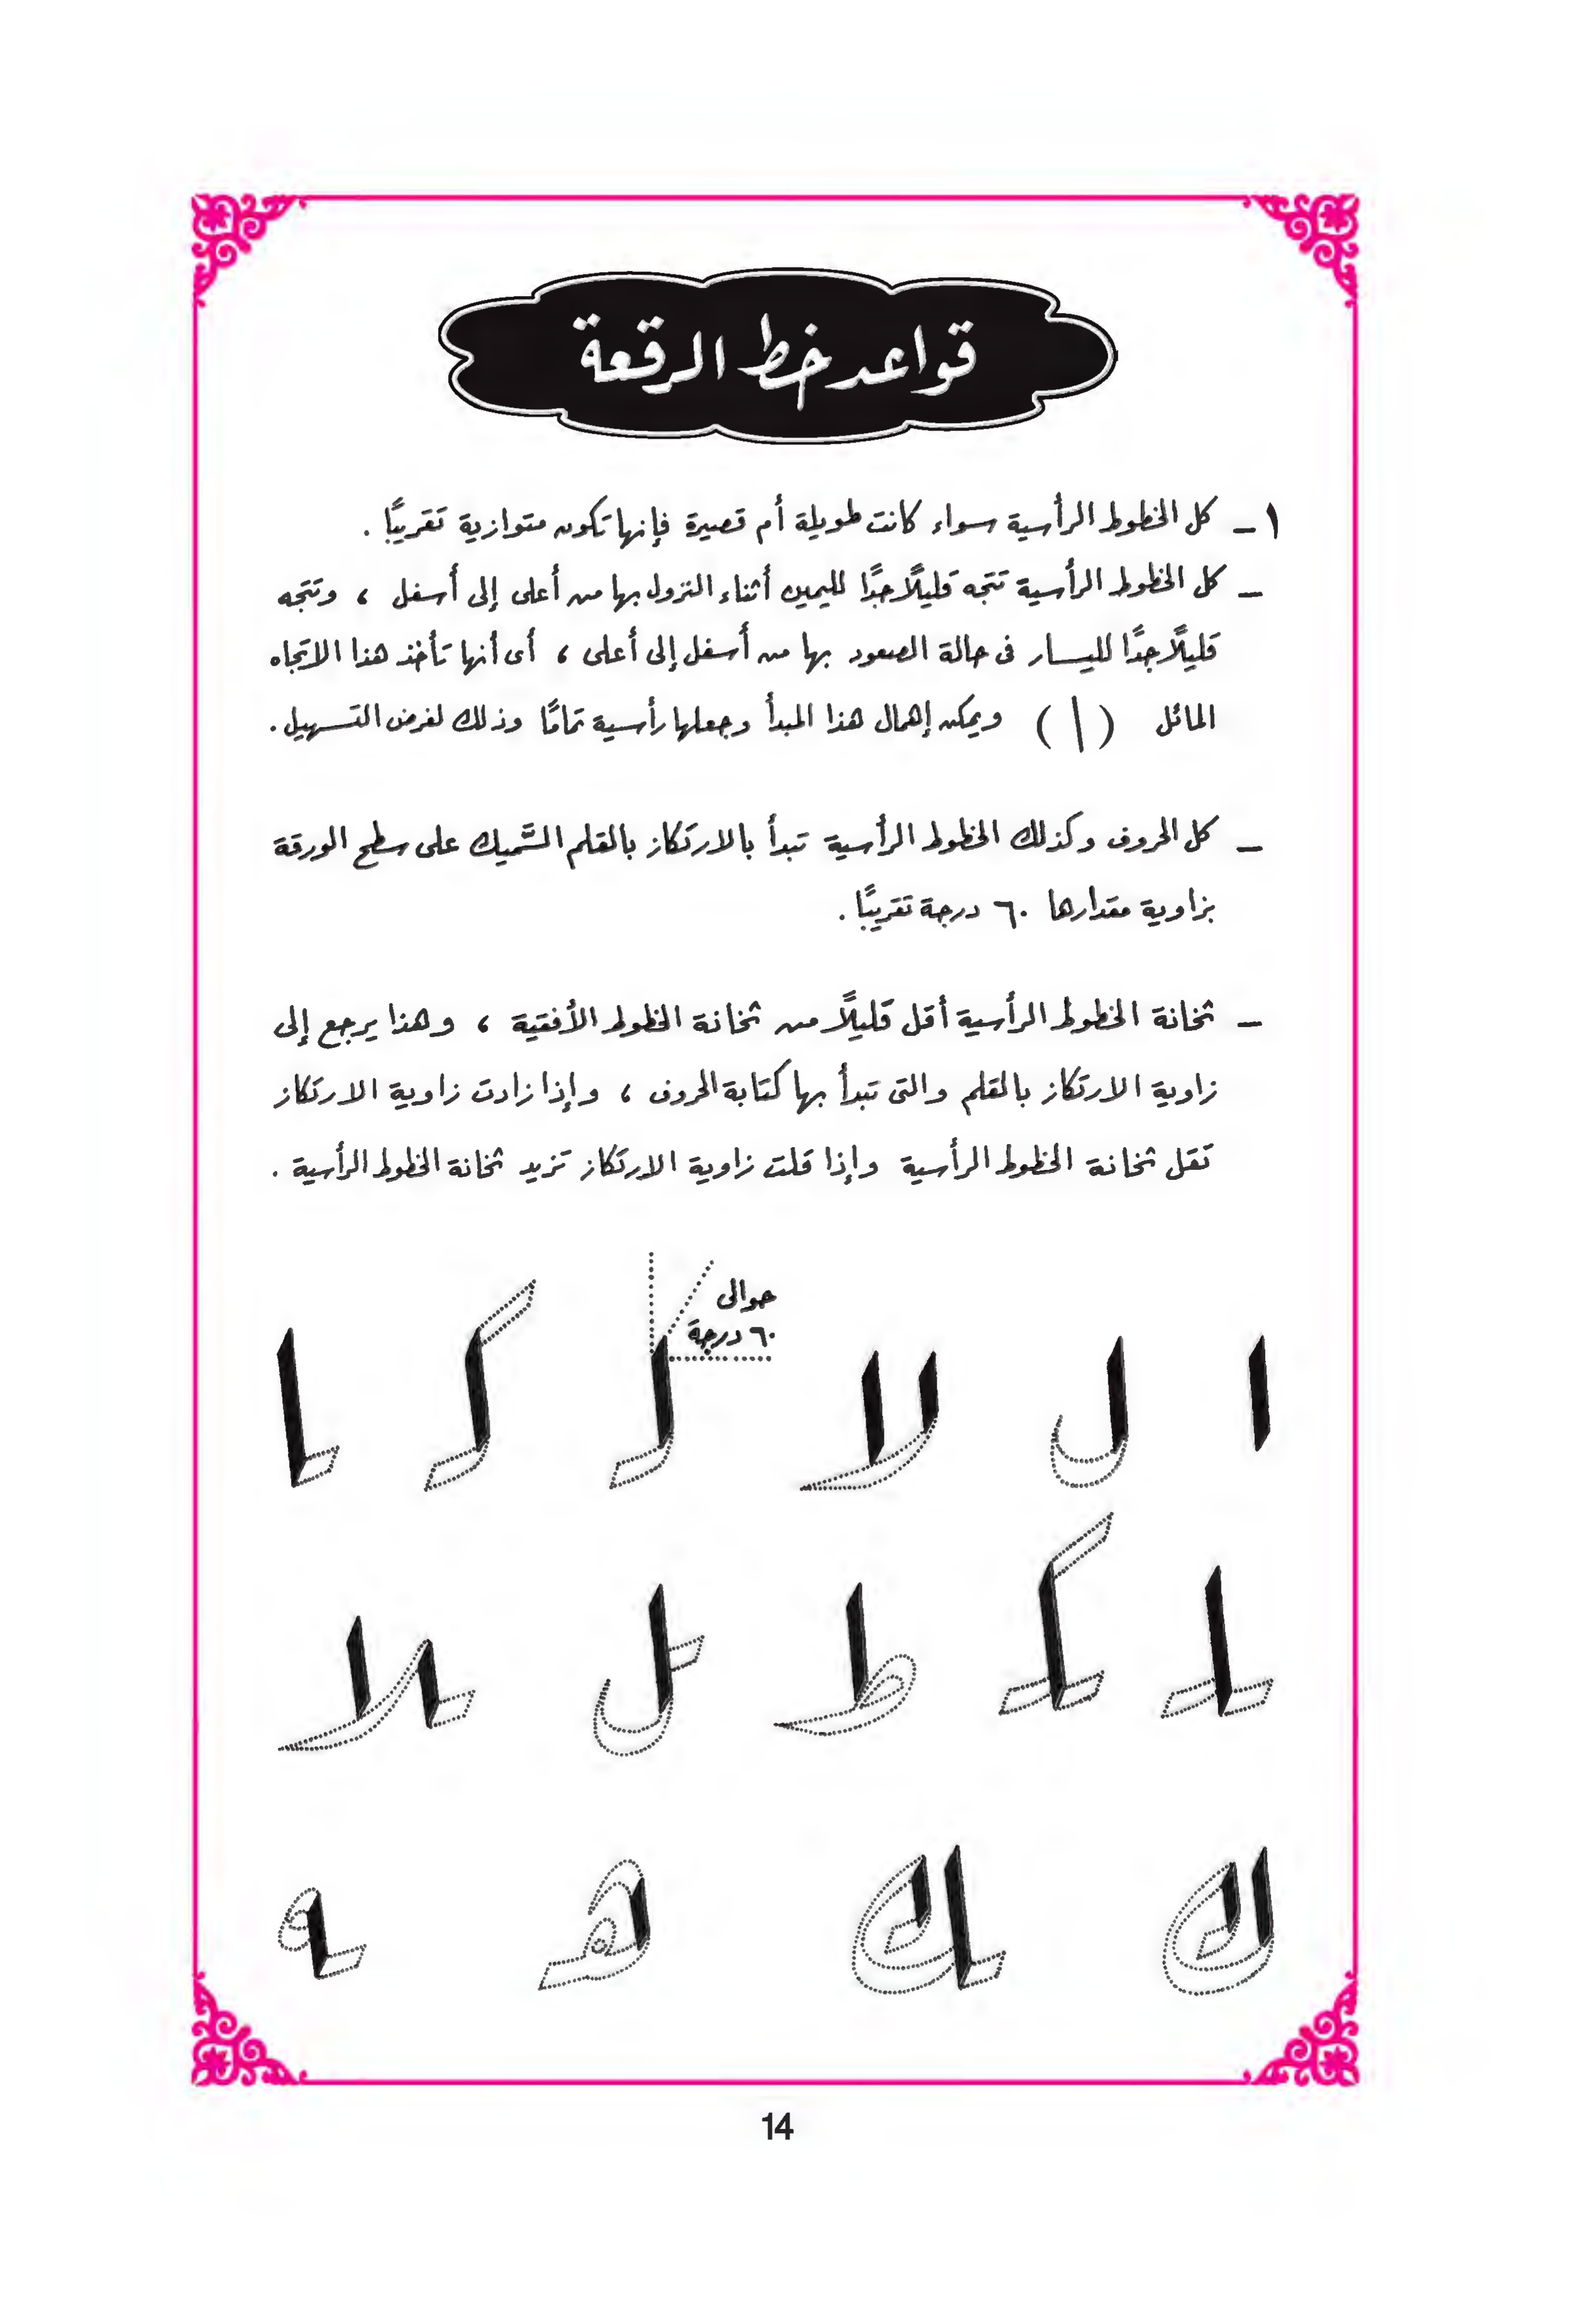 قواعد خط الرقعة
١ - كل الخطوط الرأسية سواء كانت طويلة أم قصيرة فإنها تكون متوازية تقريبًا .
- كل الخطوط الرأسية تتجه قليلًا جدًا لليمين أثناء النزول بها من أعلى إلى أسفل ، وتتجه
قليلًا جدًا لليسار فى حالة الصعود بها من أسفل إلى أعلى ، أى أنها تأخذ هذا الاتجاه
المائل ( \ ) ويمكن إهمال هذا المبدأ وجعلها رأسية تمامًا وذلك لغرض التسهيل .
- كل الحروف وكذلك الخطوط الرأسية تبدأ بالارتكاز بالقلم السَّميك على سطح الورقة
بزاوية مقدارها ٦٠ درجة تقريبًا .
- ثخانة الخطوط الرأسية أقل قليلًا من ثخانة الخطوط الأفقية ، وهذا يرجع إلى
زاوية الارتكاز بالقلم والتى تبدأ بها كتابة الحروف ، وإذا زادت زاوية الارتكاز
تقل ثخانة الخطوط الرأسية وإذا قلت زاوية الارتكاز تزيد ثخانة الخطوط الرأسية .
حوالى
٦٠ درجة
ا ل لا ك ك ا
ـلـ ـكـ ط ـل ـلا
ك ـك هـ ـه
14